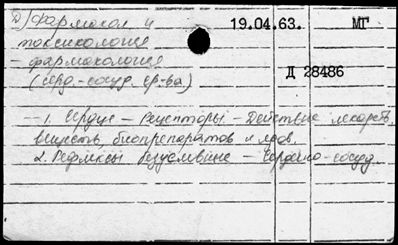 2) Фармокол и 19.04.63. МГ
токсикология
- фармокология
(серд.-сосуд. ср-ва) Д 28486
1. Сердце - Рецепторы - Действие лекарств.
веществ, биопрепаратов и ядов.
2. Рефлексы безусловные - Сердечно-сосуд.